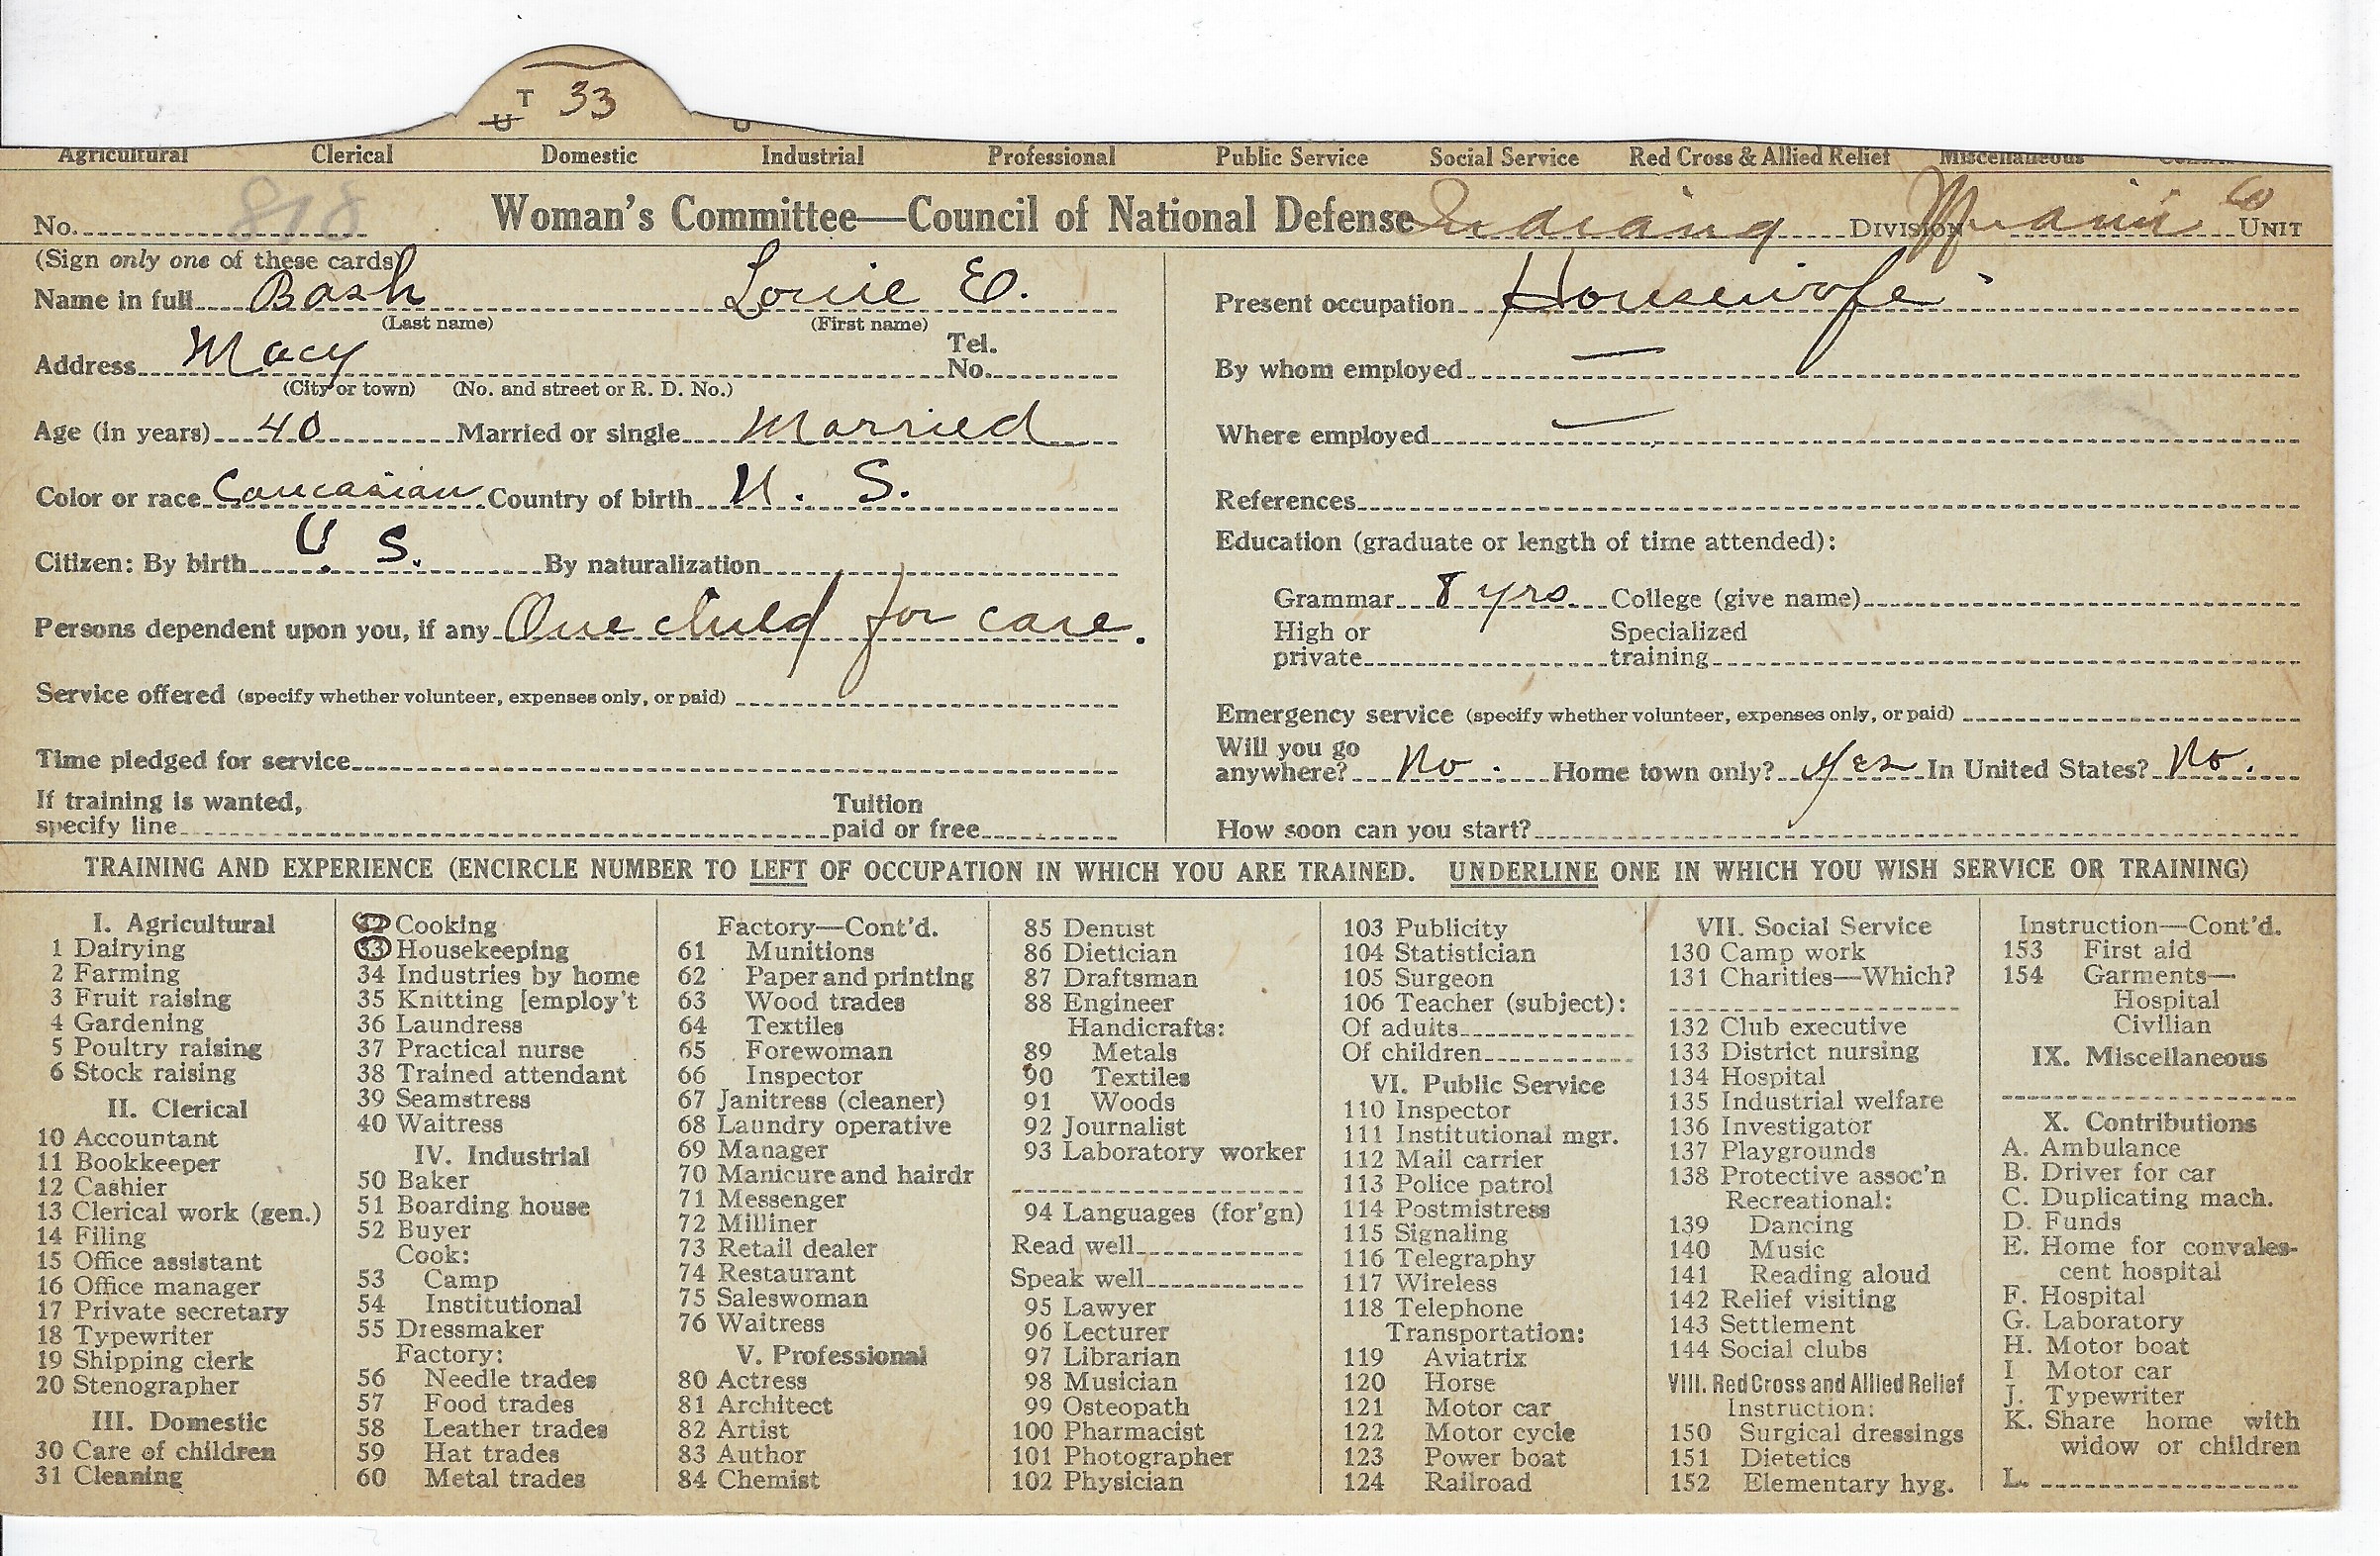 T 33
U U
Agricultural Clerical Domestic Industrial Professional Public Service Social Service Red Cross & Allied Relief Miscellaneous
No. 818 Woman's Committee—Council of National Defense Indiana Division Miami Co Unit
(Sign only one of these cards)
Name in full Bash Louie E.
(Last name) (First name)
Address Macy Tel. No.
(City or town) (No. and street or R. D. No.)
Age (in years) 40 Married or single Married
Color or race Caucasian Country of birth U. S.
Citizen: By birth U. S. By naturalization
Persons dependent upon you, if any One child for care.
Service offered (specify whether volunteer, expenses only, or paid)
Time pledged for service
If training is wanted, specify line Tuition paid or free
Present occupation Housewife
By whom employed —
Where employed —
References
Education (graduate or length of time attended):
Grammar 8 yrs College (give name)
High or private Specialized training
Emergency service (specify whether volunteer, expenses only, or paid)
Will you go anywhere? No. Home town only? Yes In United States? No.
How soon can you start?
TRAINING AND EXPERIENCE (ENCIRCLE NUMBER TO LEFT OF OCCUPATION IN WHICH YOU ARE TRAINED. UNDERLINE ONE IN WHICH YOU WISH SERVICE OR TRAINING)
I. Agricultural
1 Dairying
2 Farming
3 Fruit raising
4 Gardening
5 Poultry raising
6 Stock raising
II. Clerical
10 Accountant
11 Bookkeeper
12 Cashier
13 Clerical work (gen.)
14 Filing
15 Office assistant
16 Office manager
17 Private secretary
18 Typewriter
19 Shipping clerk
20 Stenographer
III. Domestic
30 Care of children
31 Cleaning
32 Cooking
33 Housekeeping
34 Industries by home
35 Knitting [employ't
36 Laundress
37 Practical nurse
38 Trained attendant
39 Seamstress
40 Waitress
IV. Industrial
50 Baker
51 Boarding house
52 Buyer
Cook:
53 Camp
54 Institutional
55 Dressmaker
Factory:
56 Needle trades
57 Food trades
58 Leather trades
59 Hat trades
60 Metal trades
Factory—Cont'd.
61 Munitions
62 Paper and printing
63 Wood trades
64 Textiles
65 Forewoman
66 Inspector
67 Janitress (cleaner)
68 Laundry operative
69 Manager
70 Manicure and hairdr
71 Messenger
72 Milliner
73 Retail dealer
74 Restaurant
75 Saleswoman
76 Waitress
V. Professional
80 Actress
81 Architect
82 Artist
83 Author
84 Chemist
85 Dentist
86 Dietician
87 Draftsman
88 Engineer
Handicrafts:
89 Metals
90 Textiles
91 Woods
92 Journalist
93 Laboratory worker
94 Languages (for'gn)
Read well
Speak well
95 Lawyer
96 Lecturer
97 Librarian
98 Musician
99 Osteopath
100 Pharmacist
101 Photographer
102 Physician
103 Publicity
104 Statistician
105 Surgeon
106 Teacher (subject):
Of adults
Of children
VI. Public Service
110 Inspector
111 Institutional mgr.
112 Mail carrier
113 Police patrol
114 Postmistress
115 Signaling
116 Telegraphy
117 Wireless
118 Telephone
Transportation:
119 Aviatrix
120 Horse
121 Motor car
122 Motor cycle
123 Power boat
124 Railroad
VII. Social Service
130 Camp work
131 Charities—Which?
132 Club executive
133 District nursing
134 Hospital
135 Industrial welfare
136 Investigator
137 Playgrounds
138 Protective assoc'n
Recreational:
139 Dancing
140 Music
141 Reading aloud
142 Relief visiting
143 Settlement
144 Social clubs
VIII. Red Cross and Allied Relief
Instruction:
150 Surgical dressings
151 Dietetics
152 Elementary hyg.
Instruction—Cont'd.
153 First aid
154 Garments—
Hospital
Civilian
IX. Miscellaneous
X. Contributions
A. Ambulance
B. Driver for car
C. Duplicating mach.
D. Funds
E. Home for convales-
cent hospital
F. Hospital
G. Laboratory
H. Motor boat
I Motor car
J. Typewriter
K. Share home with
widow or children
L.